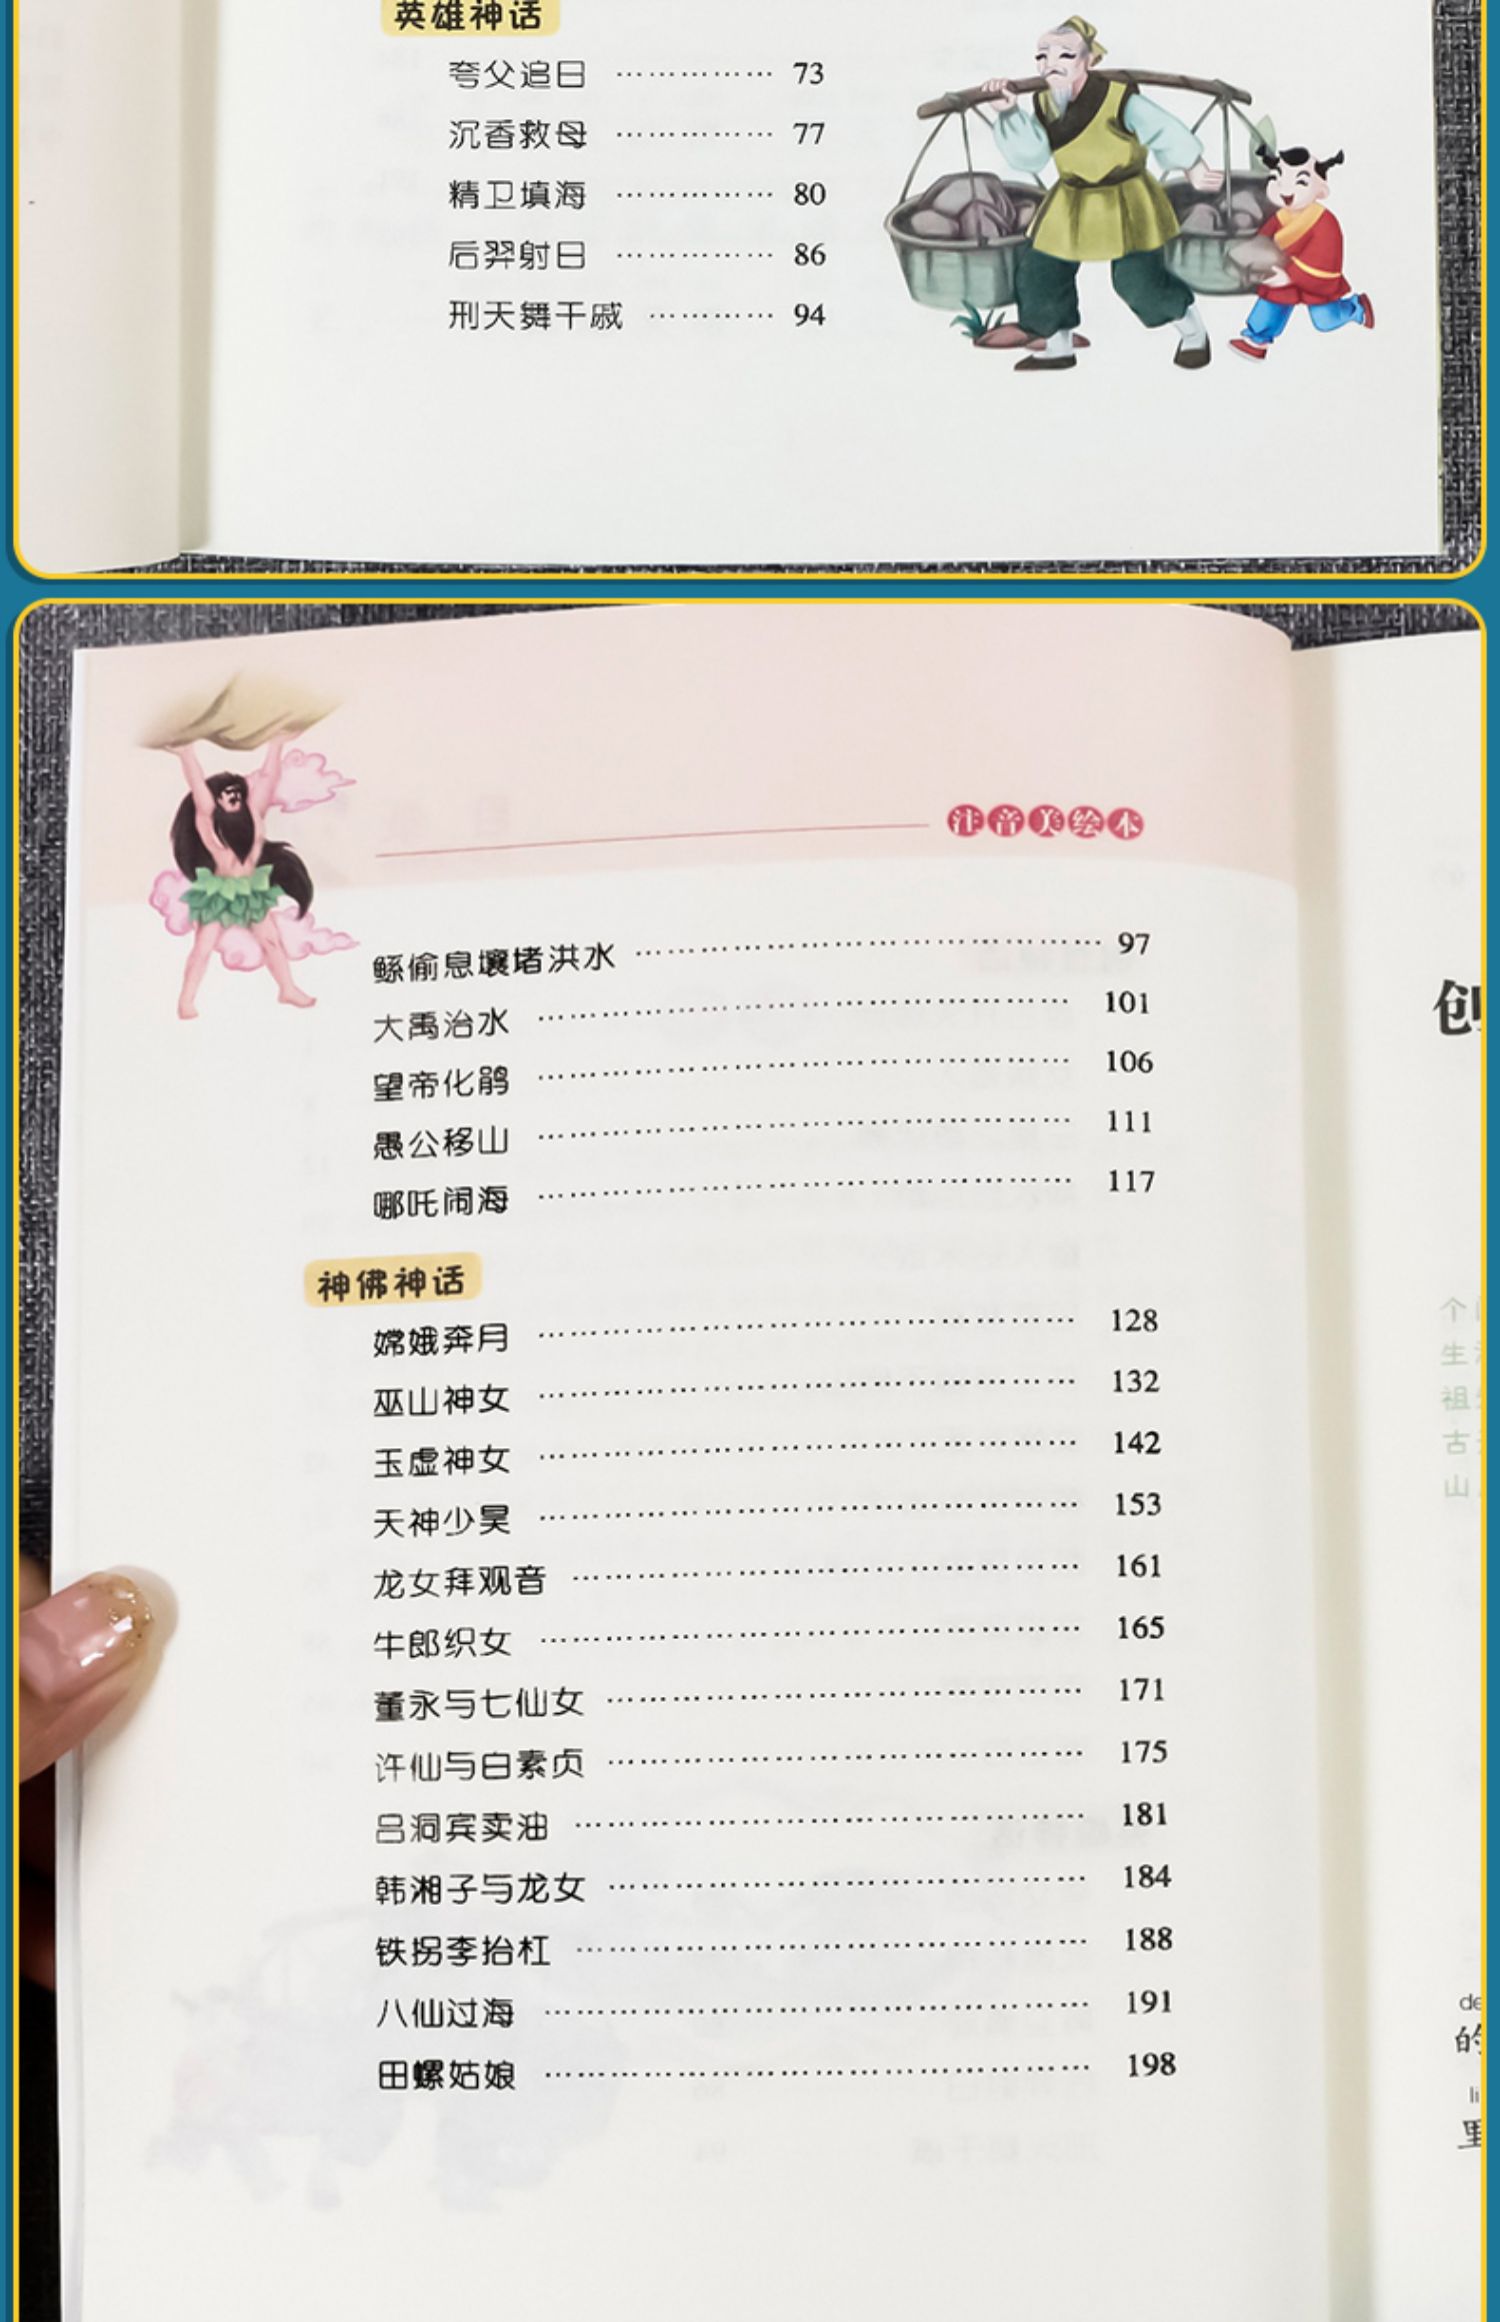 英雄神话
夸父追日 …………… 73
沉香救母 …………… 77
精卫填海 …………… 80
后羿射日 …………… 86
刑天舞干戚 ………… 94
注音美绘本
鲧偷息壤堵洪水 ………………………………………… 97
大禹治水 ……………………………………………… 101
望帝化鹃 ……………………………………………… 106
愚公移山 ……………………………………………… 111
哪吒闹海 ……………………………………………… 117
神佛神话
嫦娥奔月 ……………………………………………… 128
巫山神女 ……………………………………………… 132
玉虚神女 ……………………………………………… 142
天神少昊 ……………………………………………… 153
龙女拜观音 …………………………………………… 161
牛郎织女 ……………………………………………… 165
董永与七仙女 ………………………………………… 171
许仙与白素贞 ………………………………………… 175
吕洞宾卖油 …………………………………………… 181
韩湘子与龙女 ………………………………………… 184
铁拐李抬杠 …………………………………………… 188
八仙过海 ……………………………………………… 191
田螺姑娘 ……………………………………………… 198
创
个
生
祖
古
山
de
的
li
里